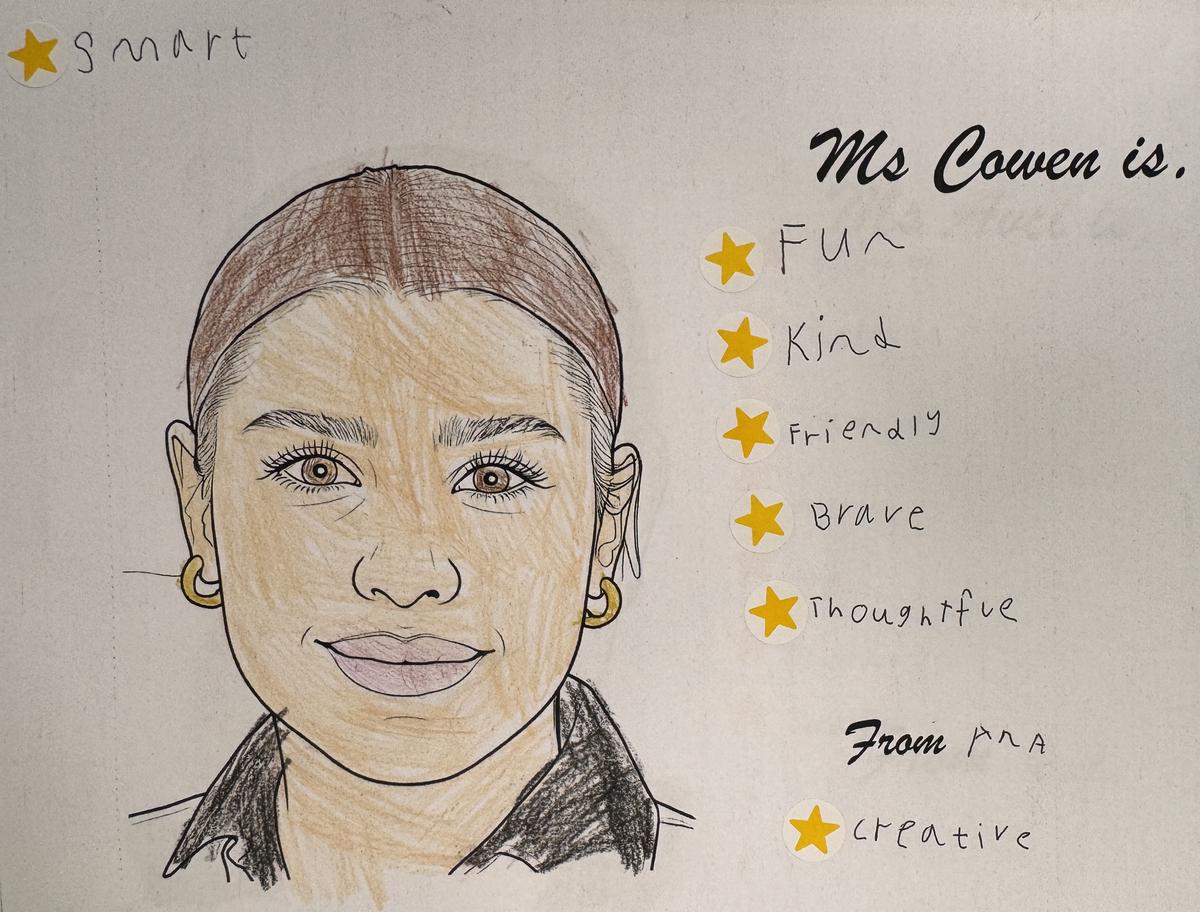 Smart
Ms Cowen is.
Fun
Kind
Friendly
Brave
Thoughtfue
From AnA
creative